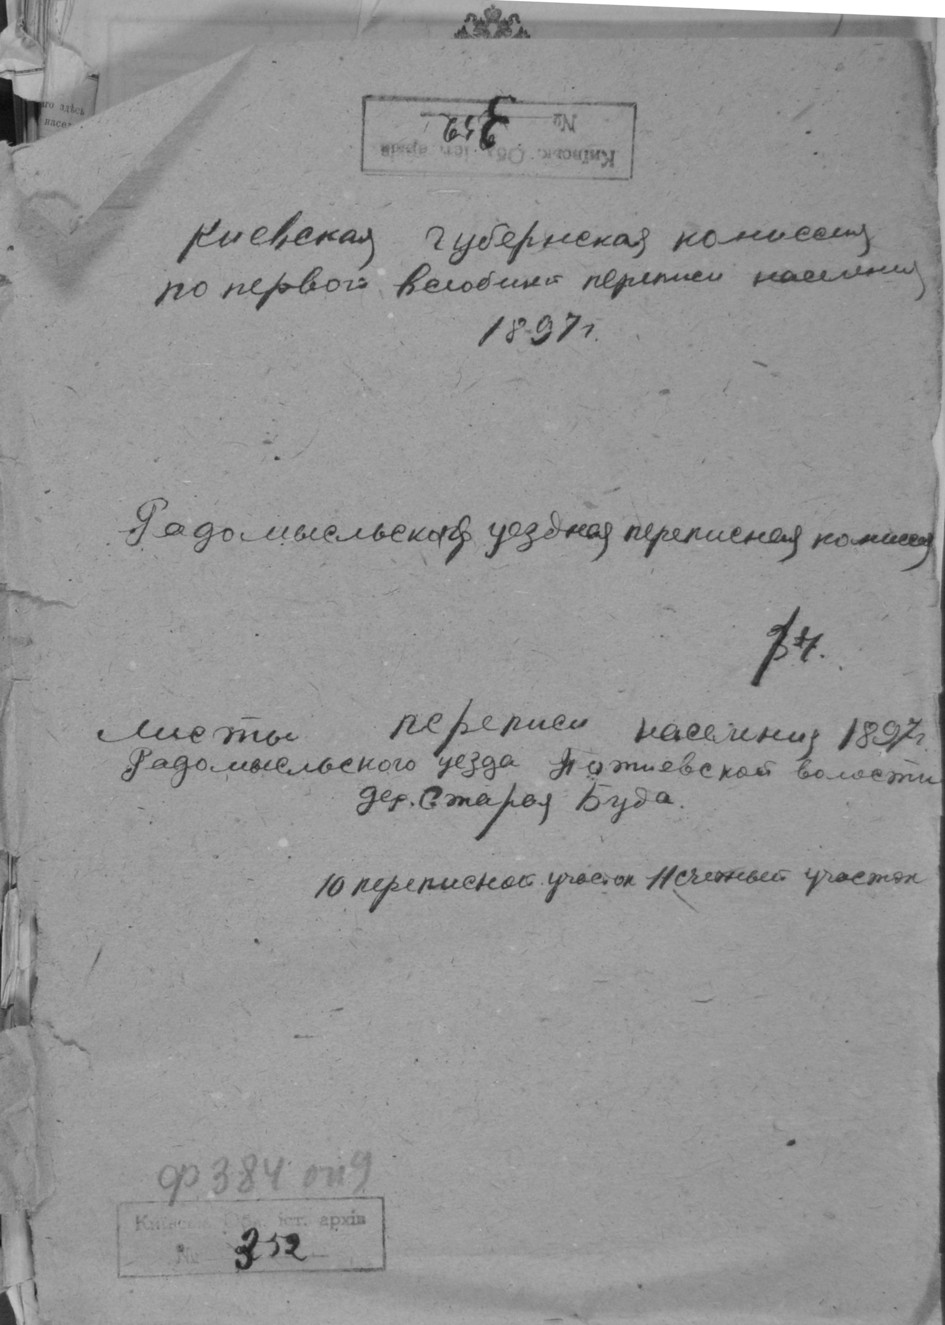 го здѣсь
Київськ. Обл. іст. архів
№ 352
Киевская губернская комиссия
по первой всеобщей переписи населения
1897 г.
Радомысльская уездная переписная комиссия
Листы переписи населения 1897 г.
Радомысльского уезда волости
дер. Старая Буда.
10 переписной участок 11 счетный участок
ф 384 оп 9
Київськ. Обл. іст. архів
№ 352